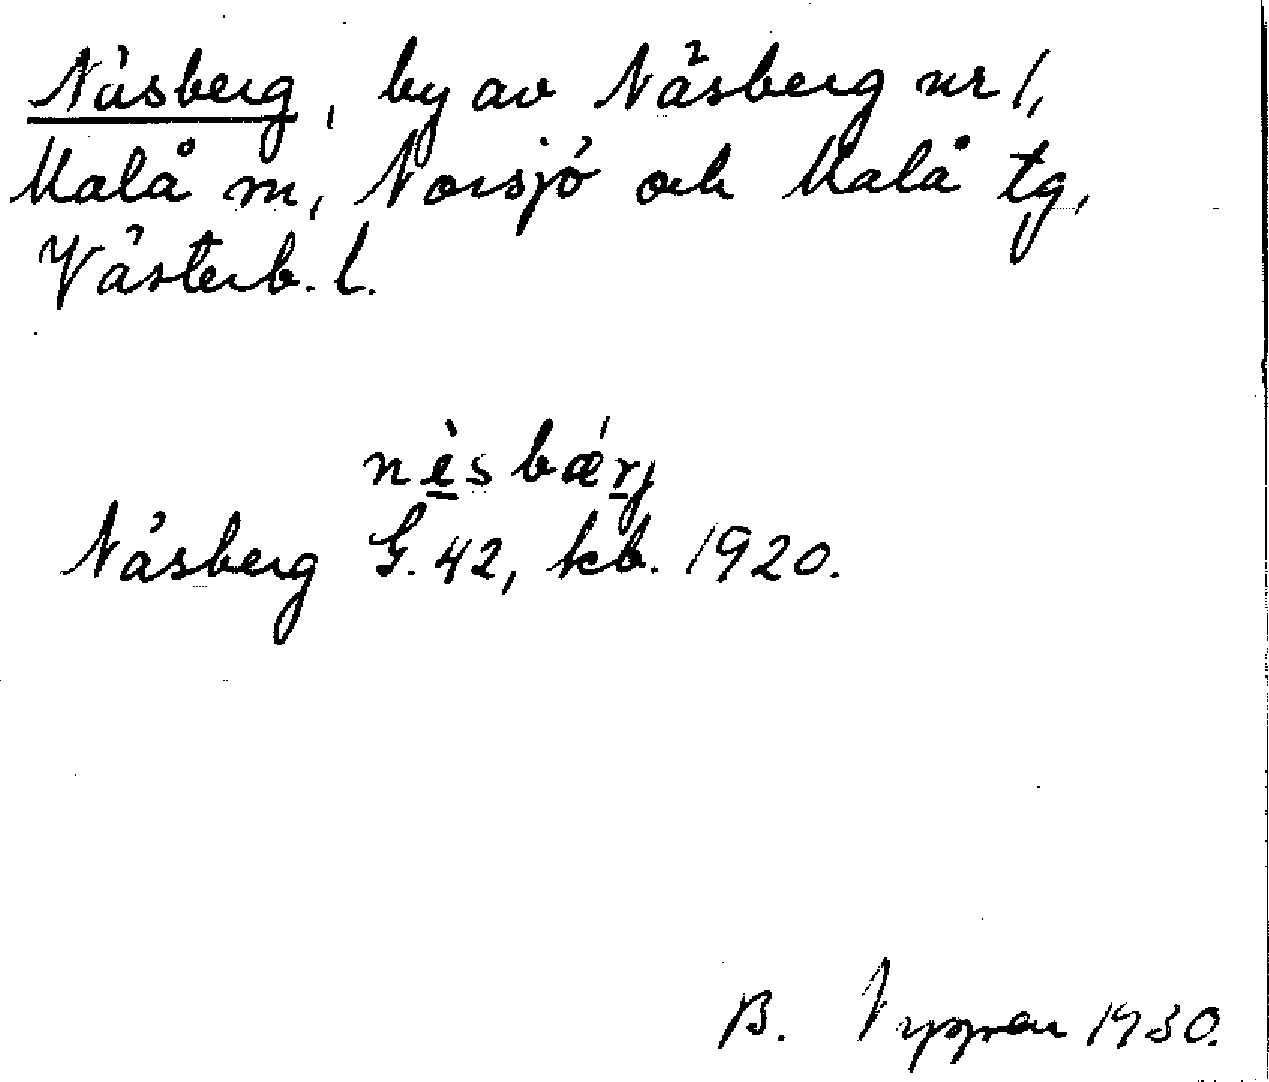 Näsberg, by av Näsberg nr 1,
Malå sn, Norsjö och Malå tg,
Västerb. l.
nèsbǽrj
Näsberg G. 42, kb. 1920.
B. 1930.